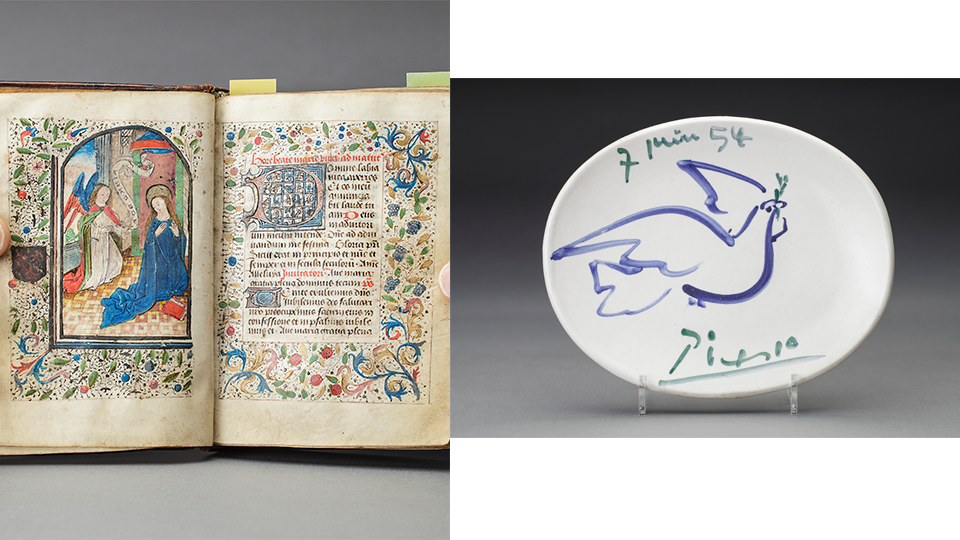 Hore beate marie virg ad matut
Domine labia
Et os meū
bit laudē tu
am Deus
in adiutori
um meum intende Dñe ad adiu
uandum me festina Gloria pri
Sicut erat in principio et nūc et
semper et in secula seculorū Amē
Alleluya Inuitatori Aue maria
gratia plena dominus tecum ps
Uenite exultemus dño
iubilemus deo salutari
nostro preoccupemus faciem eius in
confessione et in psalmis iubile
mus ei Aue maria gratia plena
7 juin 54
Picasso